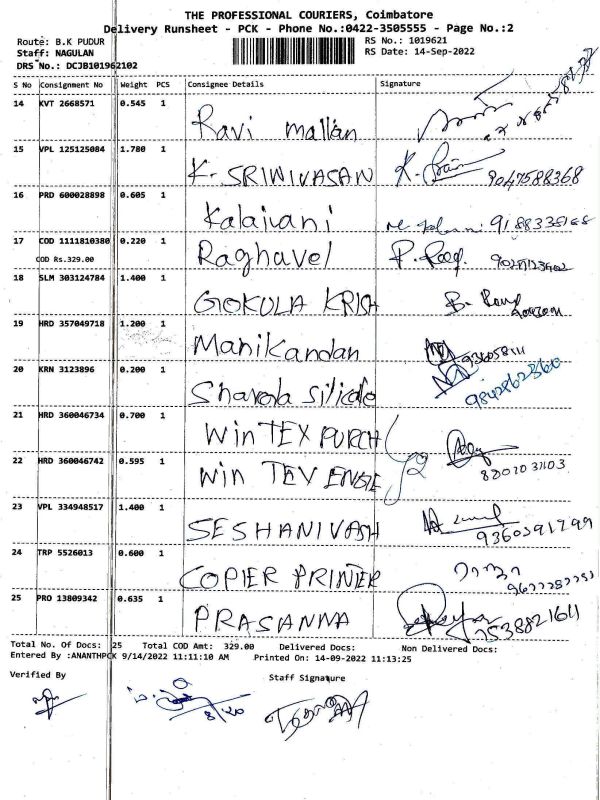 THE PROFESSIONAL COURIERS, Coimbatore
Delivery Runsheet - PCK - Phone No.:0422-3505555 - Page No.:2
Route: B.K PUDUR RS No.: 1019621
Staff: NAGULAN RS Date: 14-Sep-2022
DRS No.: DCJB101962102
S No Consignment No Weight PCS Consignee Details Signature
14 KVT 2668571 0.545 1 Ravi mallan
15 VPL 125125084 1.780 1 K. SRINIVASAN 9047588368
16 PRD 600028898 0.605 1 Kalaivani
17 COD 1111810380 0.220 1 Raghavel
COD Rs.329.00
18 SLM 303124784 1.400 1 GOKULA KRISH
19 HRD 357049718 1.200 1 Manikandan
20 KRN 3123896 0.200 1 Sharada 9842862360
21 HRD 360046734 0.700 1 WinTEX PURCH
22 HRD 360046742 0.595 1 Win TEV
23 VPL 334948517 1.400 1 SESHANIVASH 9360291799
24 TRP 5526013 0.600 1 COPIER PRINTER
25 PRO 13809342 0.635 1 PRASANNA 7538821611
Total No. Of Docs: 25 Total COD Amt: 329.00 Delivered Docs: Non Delivered Docs:
Entered By :ANANTHPCK 9/14/2022 11:11:10 AM Printed On: 14-09-2022 11:13:25
Verified By Staff Signature
8/20